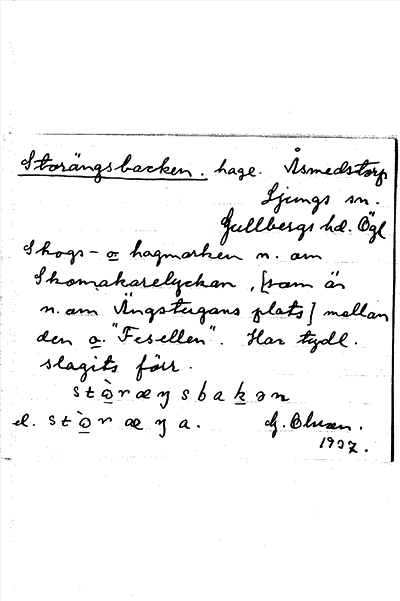 Storängsbacken. hage. Åsmedstorp
Ljungs sn.
Gullbergs hd. Ögl
Skogs- o hagmarken n. om
Skomakarelyckan, [som är
n. om Ängstugans plats] mellan
den o. "Fesellen". Har tydl.
slagits förr.
stòræŋsbakən
el. stòræŋa. G. Olsson.
1937.